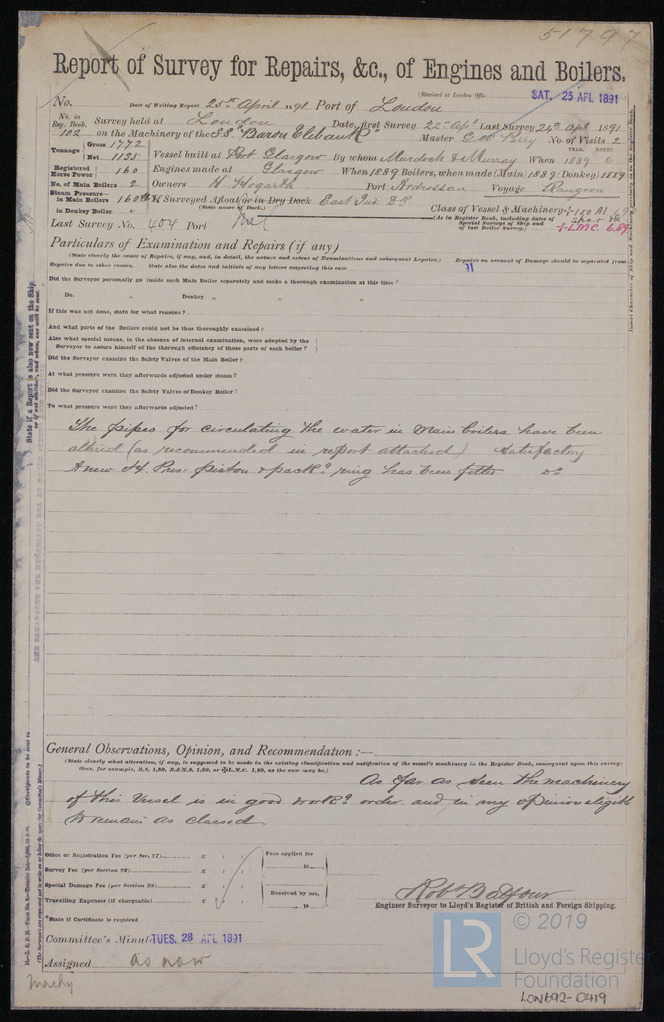 51797
Report of Survey for Repairs, &c., of Engines and Boilers.
(Received at London Office
SAT. 25 APL 1891
No. Date of Writing Report 25th April 1891 Port of London
No. in Reg. Book. Survey held at London Date, first Survey 22nd Apl Last Survey 24th Apl 1891
102 on the Machinery of the SS "Baron Elibank" Master No. of Visits 2
Tonnage Gross 1772 Net 1135 Vessel built at Port Glasgow By whom Murdoch & Murray When 1889 6
YEAR. MONTH.
Registered Horse Power 160 Engines made at Glasgow When 1889 Boilers, when made (Main) 1889 (Donkey) 1889
No. of Main Boilers 2 Owners H. Hogarth Port Ardrossan Voyage Rangoon
Steam Pressure in Main Boilers 160 If Surveyed Afloat or in Dry Dock East Ind. Dk
(State name of Dock.)
in Donkey Boiler "
Class of Vessel & Machinery 100 A1
(As in Register Book, including dates of Special Surveys of Ship and of last Boiler Survey.)
L.M.C. 6.89
Last Survey No. 404 Port
Particulars of Examination and Repairs (if any)
(State clearly the cause of Repairs, if any, and, in detail, the nature and extent of Examinations and subsequent Repairs.) Repairs on account of Damage should be separated from
Repairs due to other causes. State also the dates and initials of any letters respecting this case
Did the Surveyor personally go inside each Main Boiler separately and make a thorough examination at this time?
Do. " Donkey " " "
If this was not done, state for what reasons?
And what parts of the Boilers could not be thus thoroughly examined?
Also what special means, in the absence of internal examination, were adopted by the
Surveyor to assure himself of the thorough efficiency of those parts of each boiler?
Did the Surveyor examine the Safety Valves of the Main Boiler?
At what pressure were they afterwards adjusted under steam?
Did the Surveyor examine the Safety Valves of Donkey Boiler?
To what pressure were they afterwards adjusted?
The pipes for circulating the water in Main Boilers have been
altered (as recommended in report attached) satisfactory
A new H. Pres. piston & packg ring has been fitted do
General Observations, Opinion, and Recommendation :—
(State clearly what alteration, if any, is suggested to be made to the existing classification and notification of the vessel's machinery in the Register Book, consequent upon this survey;
thus, for example, B.S. 1,89, B.&M.S. 1,89, or L.M.C. 1,89, as the case may be.)
As far as seen the machinery
of this vessel is in good workg order and in my opinion eligible
to remain as classed
Office or Registration Fee (per Sec. 27) £ : : Fees applied for
Survey Fee (per Section 28) £ : : 18
Special Damage Fee (per Section 28) £ : : Received by me,
Travelling Expenses (if chargeable) £ : : 18
Robt Balfour
Engineer Surveyor to Lloyd's Register of British and Foreign Shipping.
*State if Certificate is required
Committee's Minute TUES. 28 APL 1891
Assigned as now
Machy
© 2019
LR
Lloyd's Register
Foundation
LON692-0419
State if a Report is also now sent on the Ship,